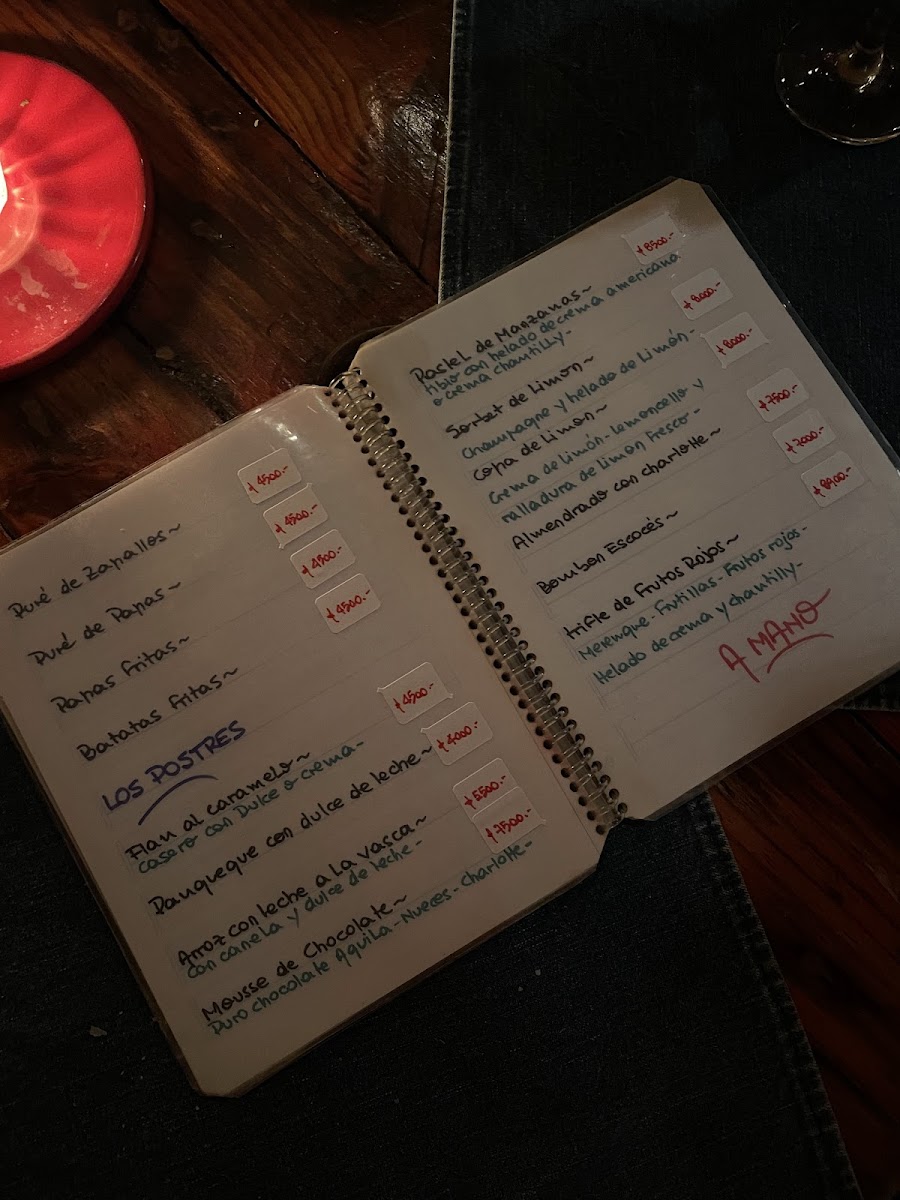 Puré de Zapallos~ $4500.-
Puré de Papas~ $4500.-
Papas fritas~ $4500.-
Batatas fritas~ $4500.-
LOS POSTRES
Flan al caramelo~ $4500.-
casero con Dulce o crema-
Panqueque con dulce de leche~ $4000.-
Arroz con leche a la vasca~ $5500.-
con canela y dulce de leche-
Mousse de Chocolate~ $7500.-
Puro chocolate Aguila-Nueces-charlotte-
Pastel de Manzanas~ $8500.-
tibio con helado de crema americana
o crema chantilly-
Sorbet de Limon~ $8000.-
Champagne y helado de Limón-
Copa de Limon~ $8000.-
Crema de limón-lemoncello y
ralladura de limon fresco-
Almendrado con charlotte~ $7500.-
Bombon Escocés~ $7000.-
trifle de Frutos Rojos~
Merenque-Frutillas-Frutos rojos-
Helado de crema y chantilly-
A MANO